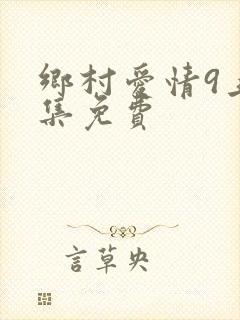 鄉村愛情9
集免費
言草央